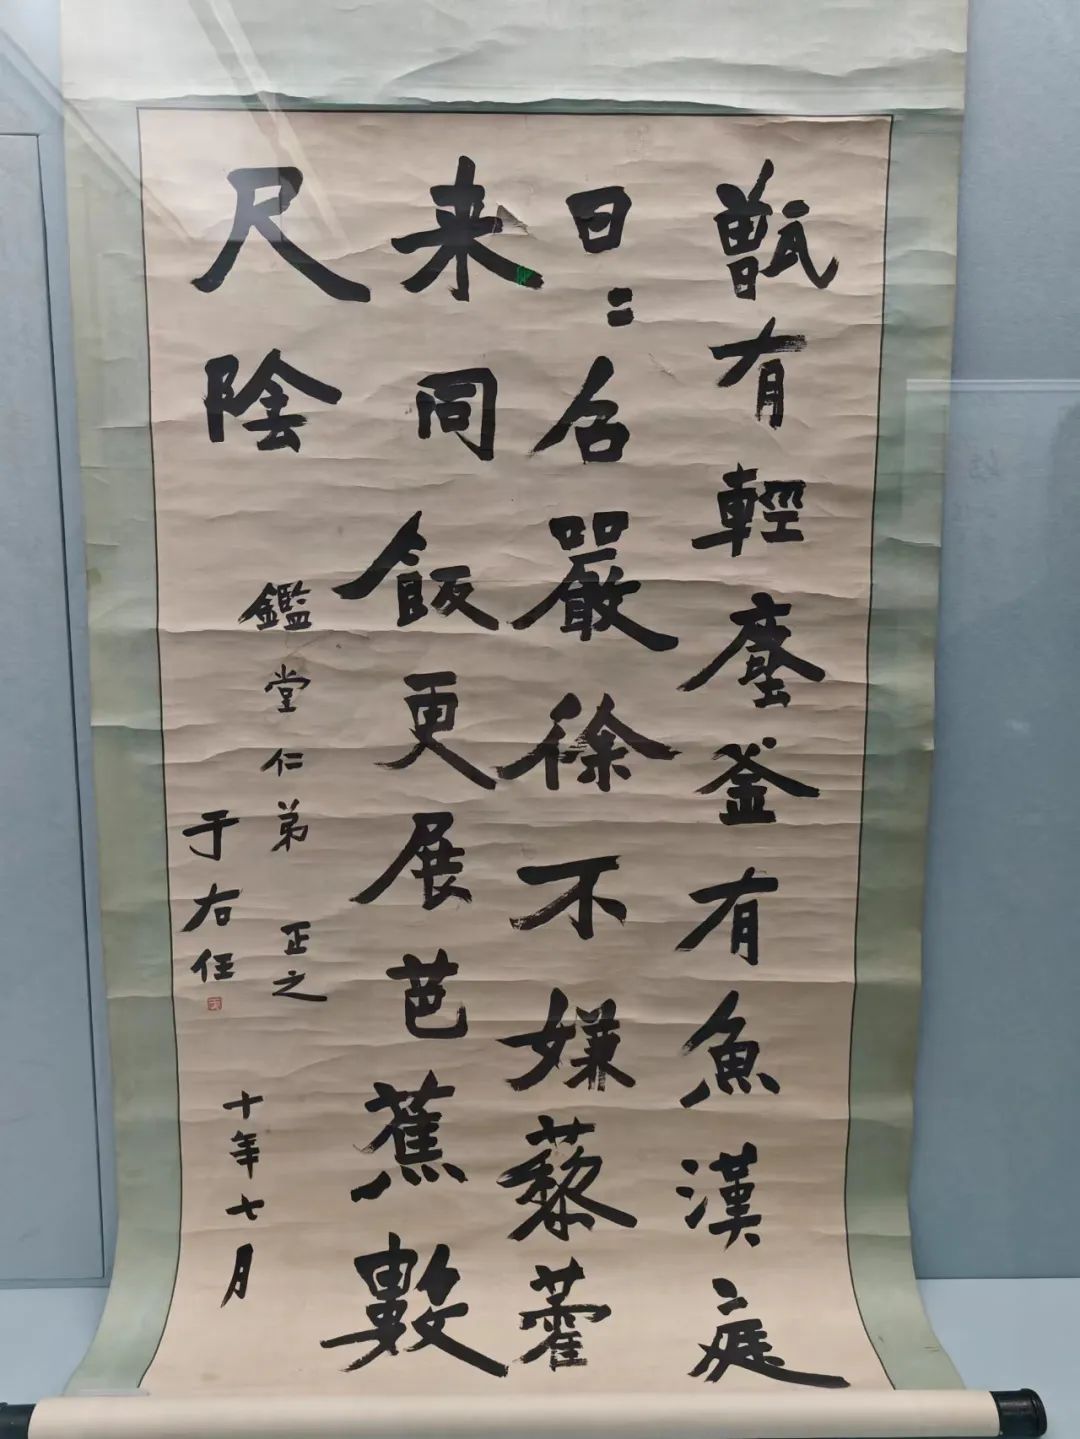 甑有輕塵釜有魚漢庭
日〻召嚴徐不嫌藜藿
来同飯更展芭蕉數
尺陰
鑑堂仁弟 正之
于右任
十年七月